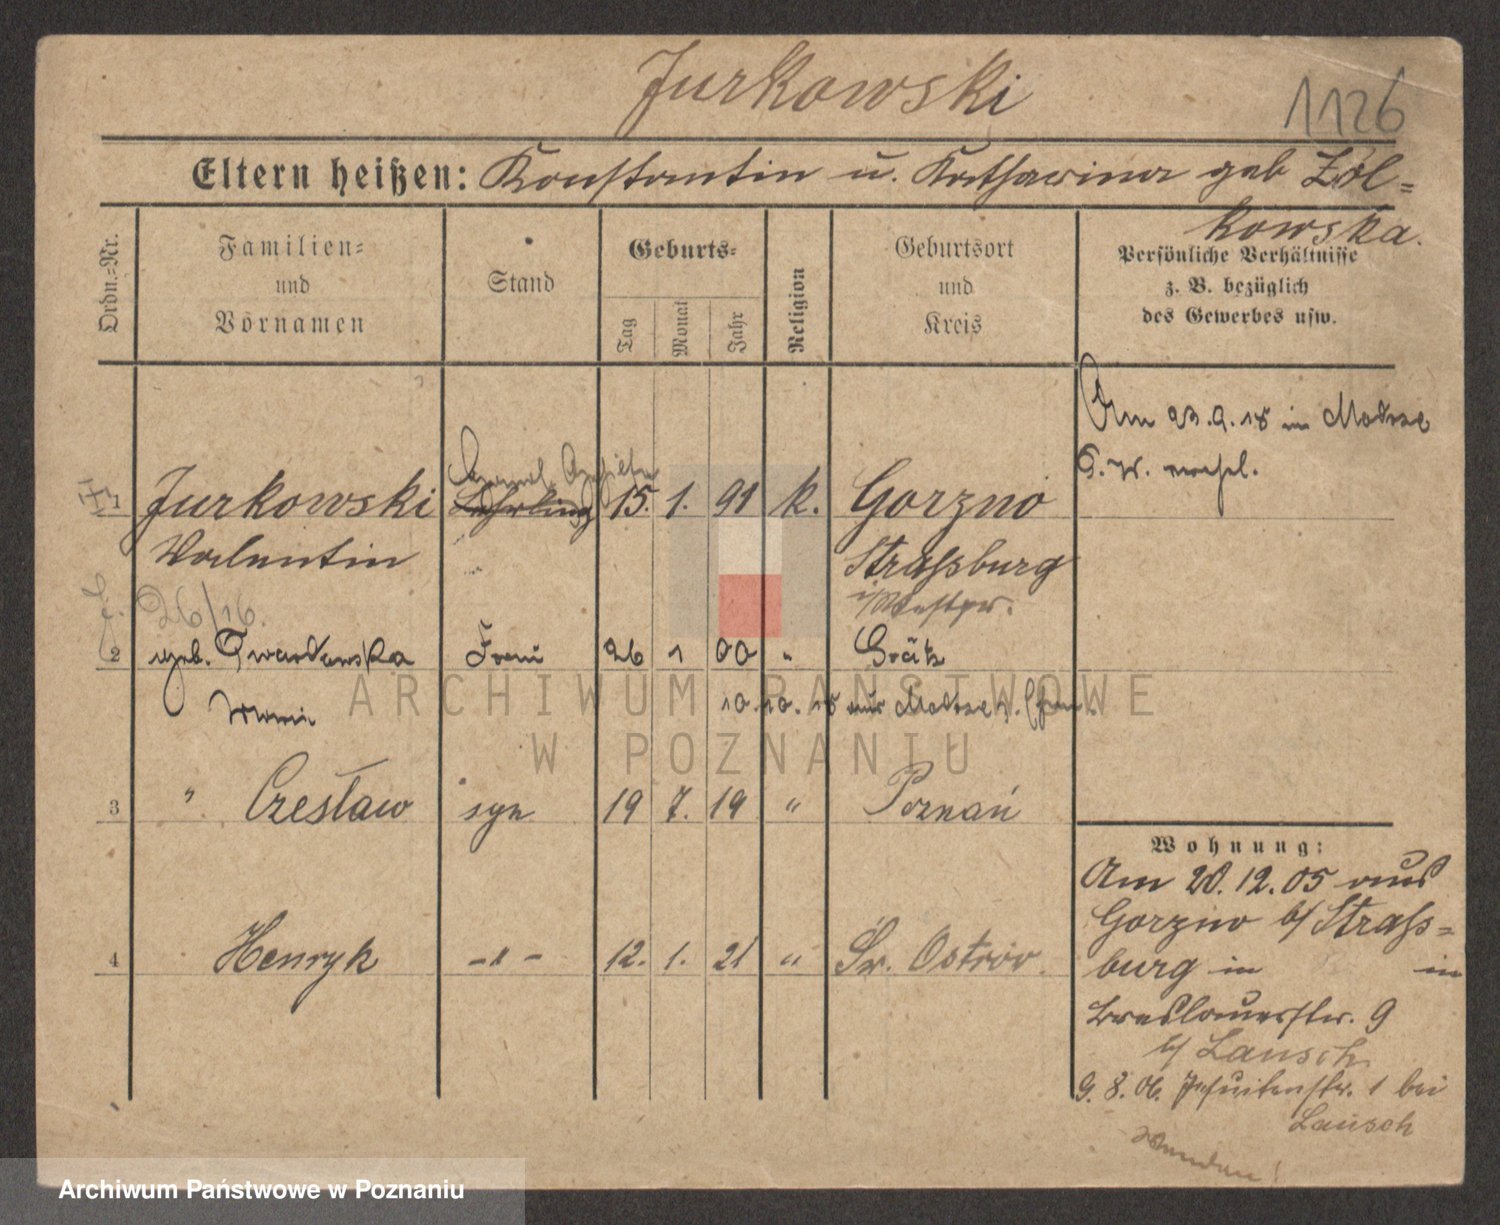 Jurkowski
1126
Eltern heißen: Konstantin u. Katharina geb Zol=
kowska.
Ordn.=Nr.
Familien=
und
Vornamen
Stand
Geburts=
Tag
Monat
Jahr
Religion
Geburtsort
und
Kreis
Persönliche Verhältnisse
z. B. bezüglich
des Gewerbes usw.
Am 23.9.18 in
Jurkowski Lehrling 15. 1. 91 k. Gorzno
Valentin Straßburg
i/Westpr.
26/16.
2 geb. Twardowska Frau 26 1 00 " Grätz
10.10.18 aus
3 " Czesław syn 19 7. 19 " Poznań
4 Henryk -"- 12. 1. 21 " Śr. Ostrów
Wohnung:
Am 20.12.05 aus
Gorzno b/ Straß=
burg in in
Breslauerstr. 9
b/ Lausch
9.8.06. Jesuitenstr. 1 bei
Lausch
Wenden!
ARCHIWUM PAŃSTWOWE
W POZNANIU
Archiwum Państwowe w Poznaniu